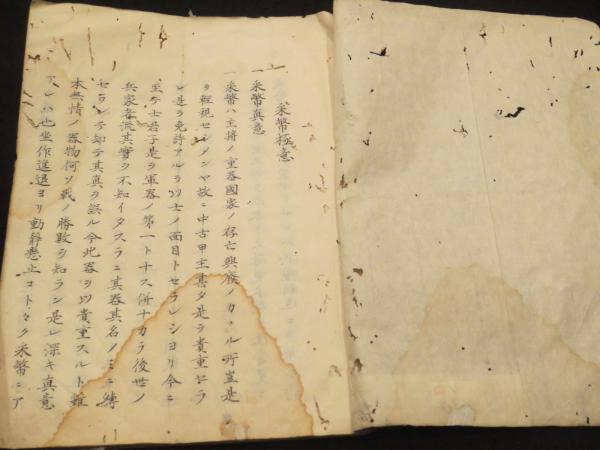 采幣極意
一采幣真意
一采幣ハ主将ノ重器國家ノ存亡興廃ノカヽル所豈是
ヲ軽視センノンヤ故ニ中古甲主甚タ是ヲ貴重セラ
レ是ヲ免許アルヲ以士ノ面目トセラレシヨリ今ニ
至テ士君子是ヲ軍器ノ第一トナス併ナカラ後世ノ
兵家者流其實ヲ不知イタスラニ其器其名ノミニ縛
セラレテ却テ其真ヲ誤ル今此器ヲ以貴重スルト雖
本無情ノ器物何ソ戦ノ勝敗ヲ知ラン是レ深キ真意
アレハ也坐作進退ヨリ動静懸止コトヽク采幣ニア